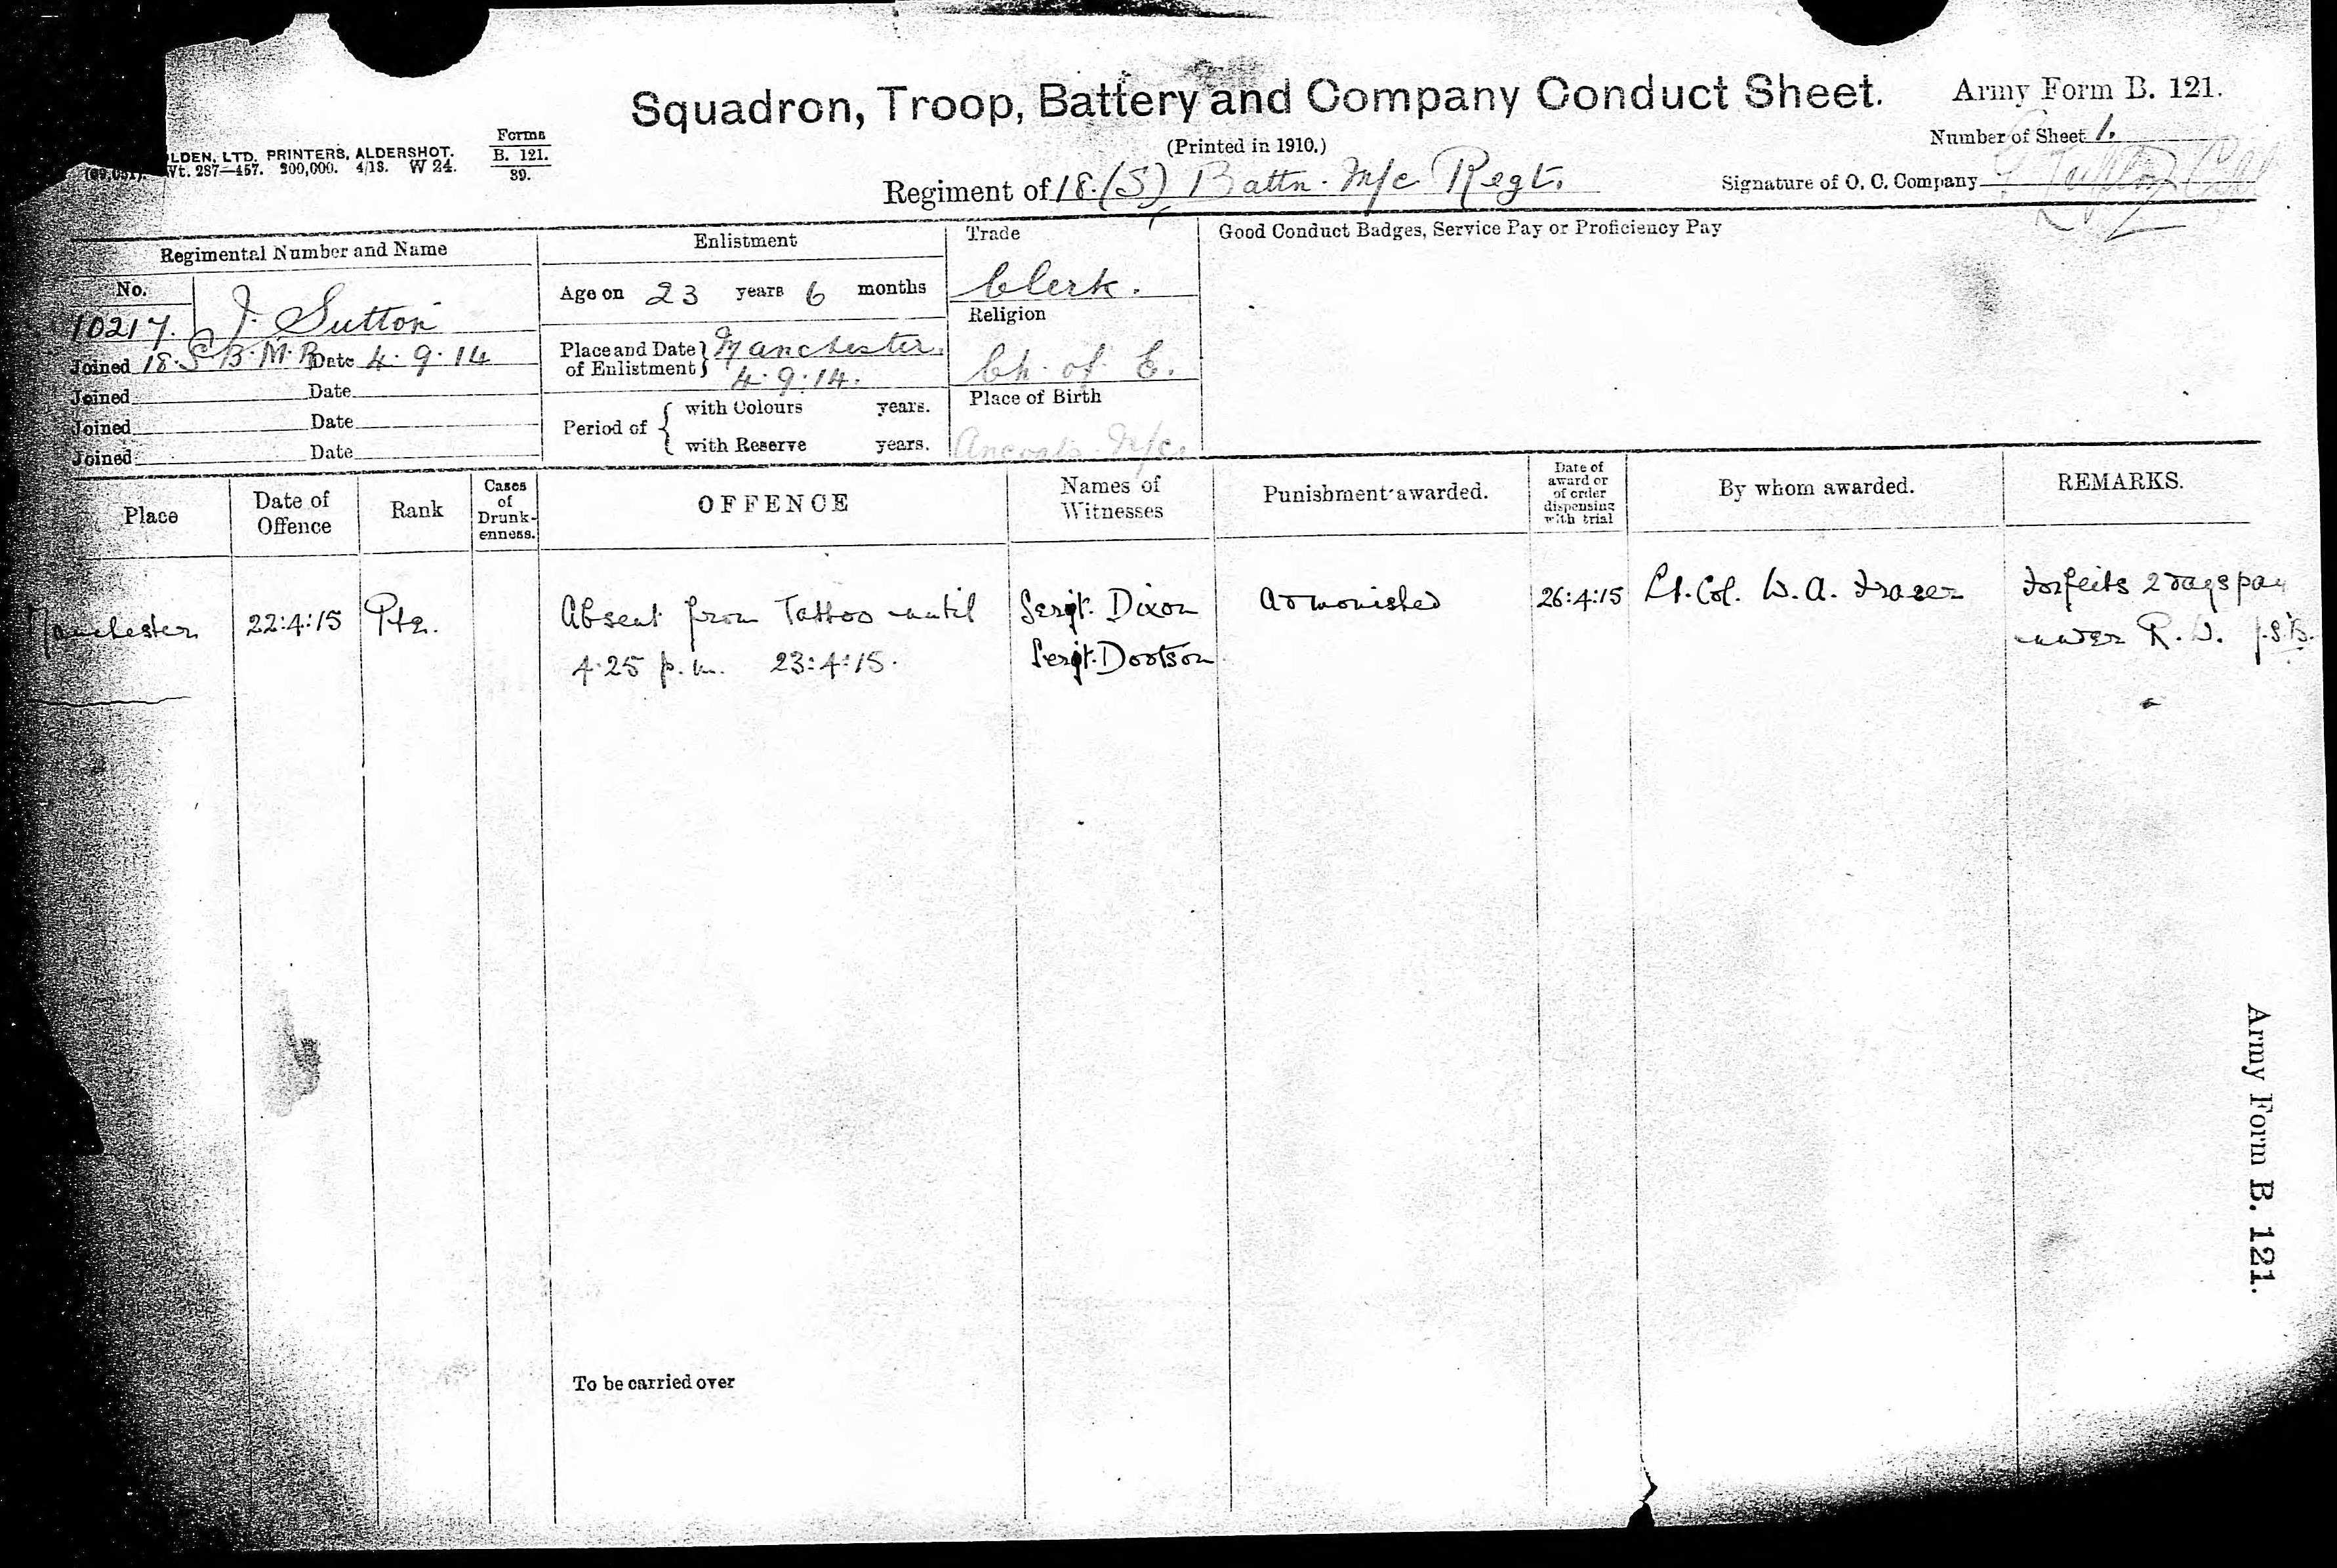 Squadron, Troop, Battery and Company Conduct Sheet.
Army Form B. 121.
(Printed in 1910.)
Number of Sheet 1.
LDEN, LTD. PRINTERS, ALDERSHOT.
Wt. 287—457. 200,000. 4/13. W 24.
Forms
B. 121.
39.
Regiment of 18. (S) Battn. M/c Regt.
Signature of O. C. Company
Regimental Number and Name
No.
10217. J. Sutton
Joined 18. S. B. M. R. Date 4.9.14
Joined Date
Joined Date
Joined Date
Enlistment
Age on 23 years 6 months
Place and Date of Enlistment } Manchester.
4.9.14.
Period of { with Colours years.
with Reserve years.
Trade
Clerk.
Religion
Ch. of E.
Place of Birth
Ancoats M/c.
Good Conduct Badges, Service Pay or Proficiency Pay
Place
Date of Offence
Rank
Cases of Drunk-enness.
OFFENCE
Names of Witnesses
Punishment awarded.
Date of award or of order dispensing with trial
By whom awarded.
REMARKS.
Manchester 22:4:15 Pte. Absent from Tattoo until Sergt. Dixon admonished 26:4:15 Lt. Col. W. A. Fraser Forfeits 2 days pay
4.25 p.m. 23:4:15. Sergt. Dootson under R. W.
To be carried over
Army Form B. 121.